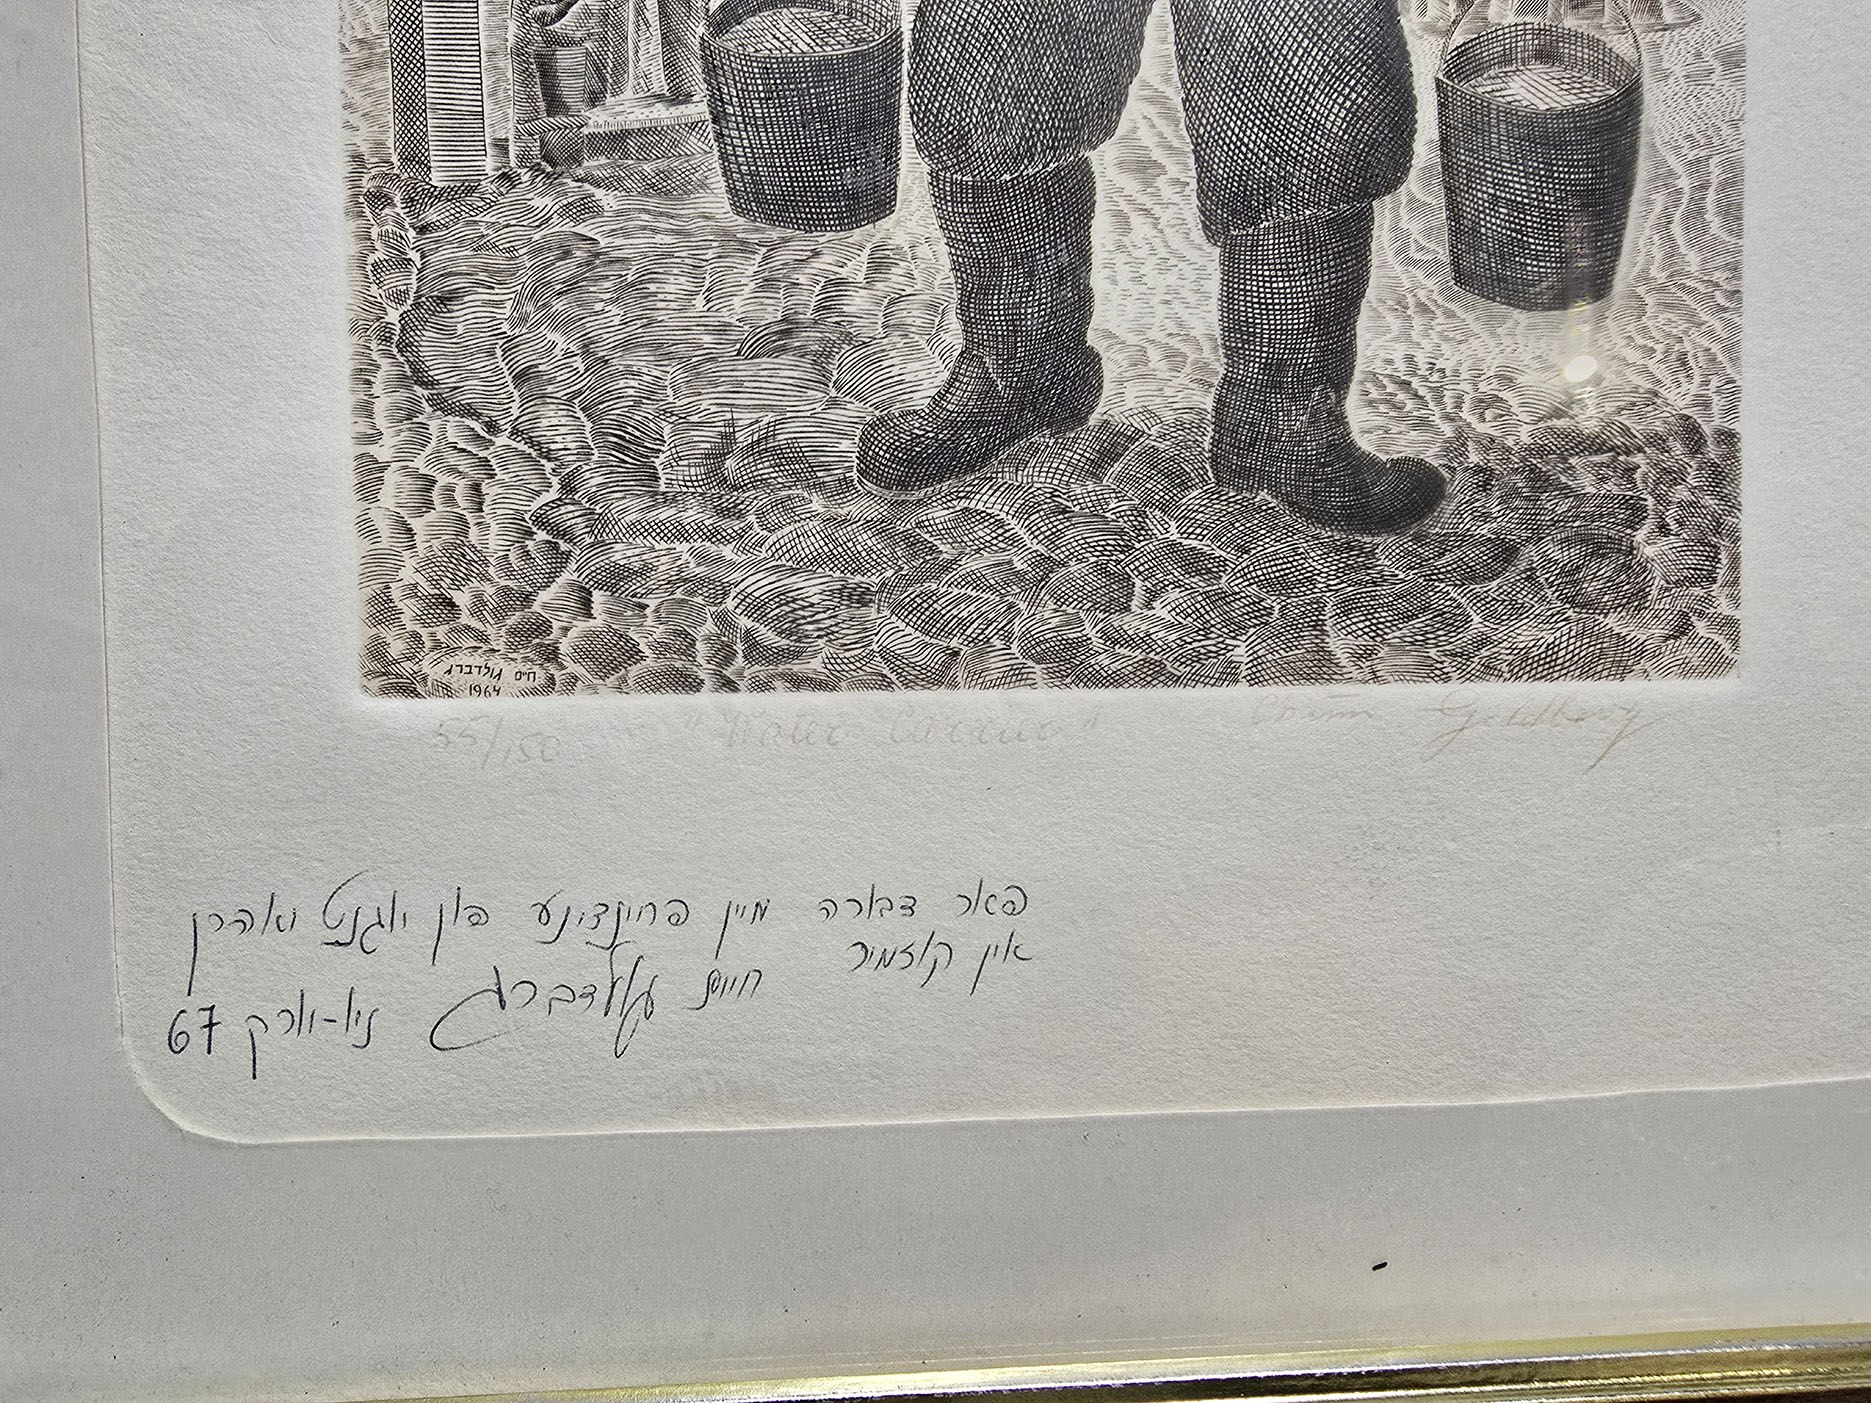 חיים גולדברג
1964
55/150 "Water Carrier" Chaim Goldberg
פאר דבורה מיין פריינדינע פון יוגנט יאהרן
אין קוזמיר
חיים גאלדבערג
ניו-יורק 67